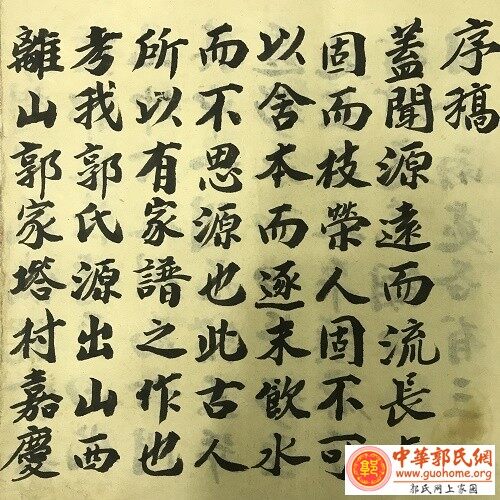 序稿
蓋聞源遠而流長
固而枝榮人固不可
以舍本而逐末飲水
而不思源也此古人
所以有家譜之作也
考我郭氏源出山西
離山郭家塔村嘉慶
中華郭氏網
www.guohome.org
郭氏网上家園